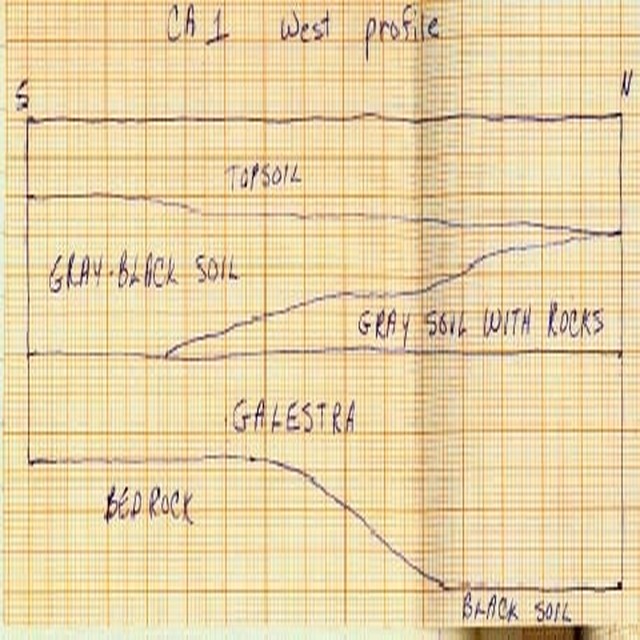 CA 1 West profile
S N
TOPSOIL
GRAY-BLACK SOIL
GRAY SOIL WITH ROCKS
GALESTRA
BEDROCK
BLACK SOIL